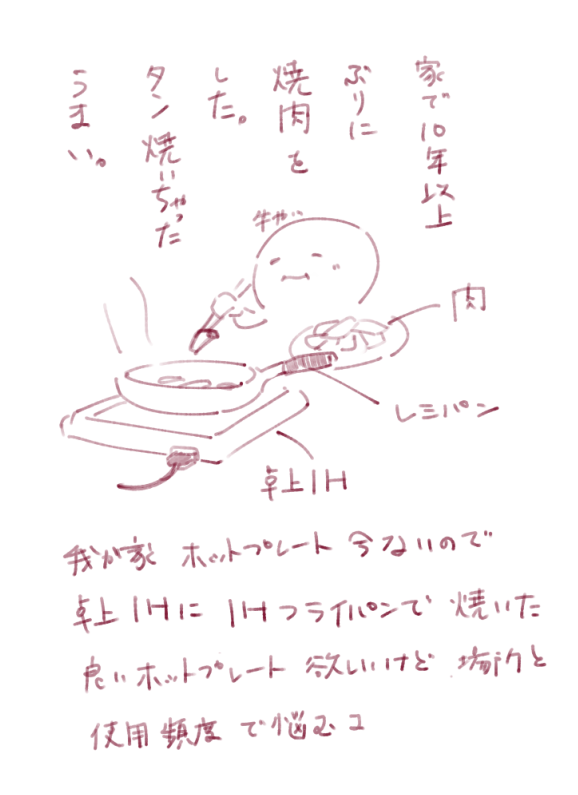 家で10年以上
ぶりに
焼肉を
した。
タン焼いちゃった
うまい。
肉
レミパン
卓上IH
我が家 ホットプレート 今ないので
卓上IHに IHフライパンで 焼いた
良いホットプレート 欲しいけど 場所と
使用頻度で悩むコ